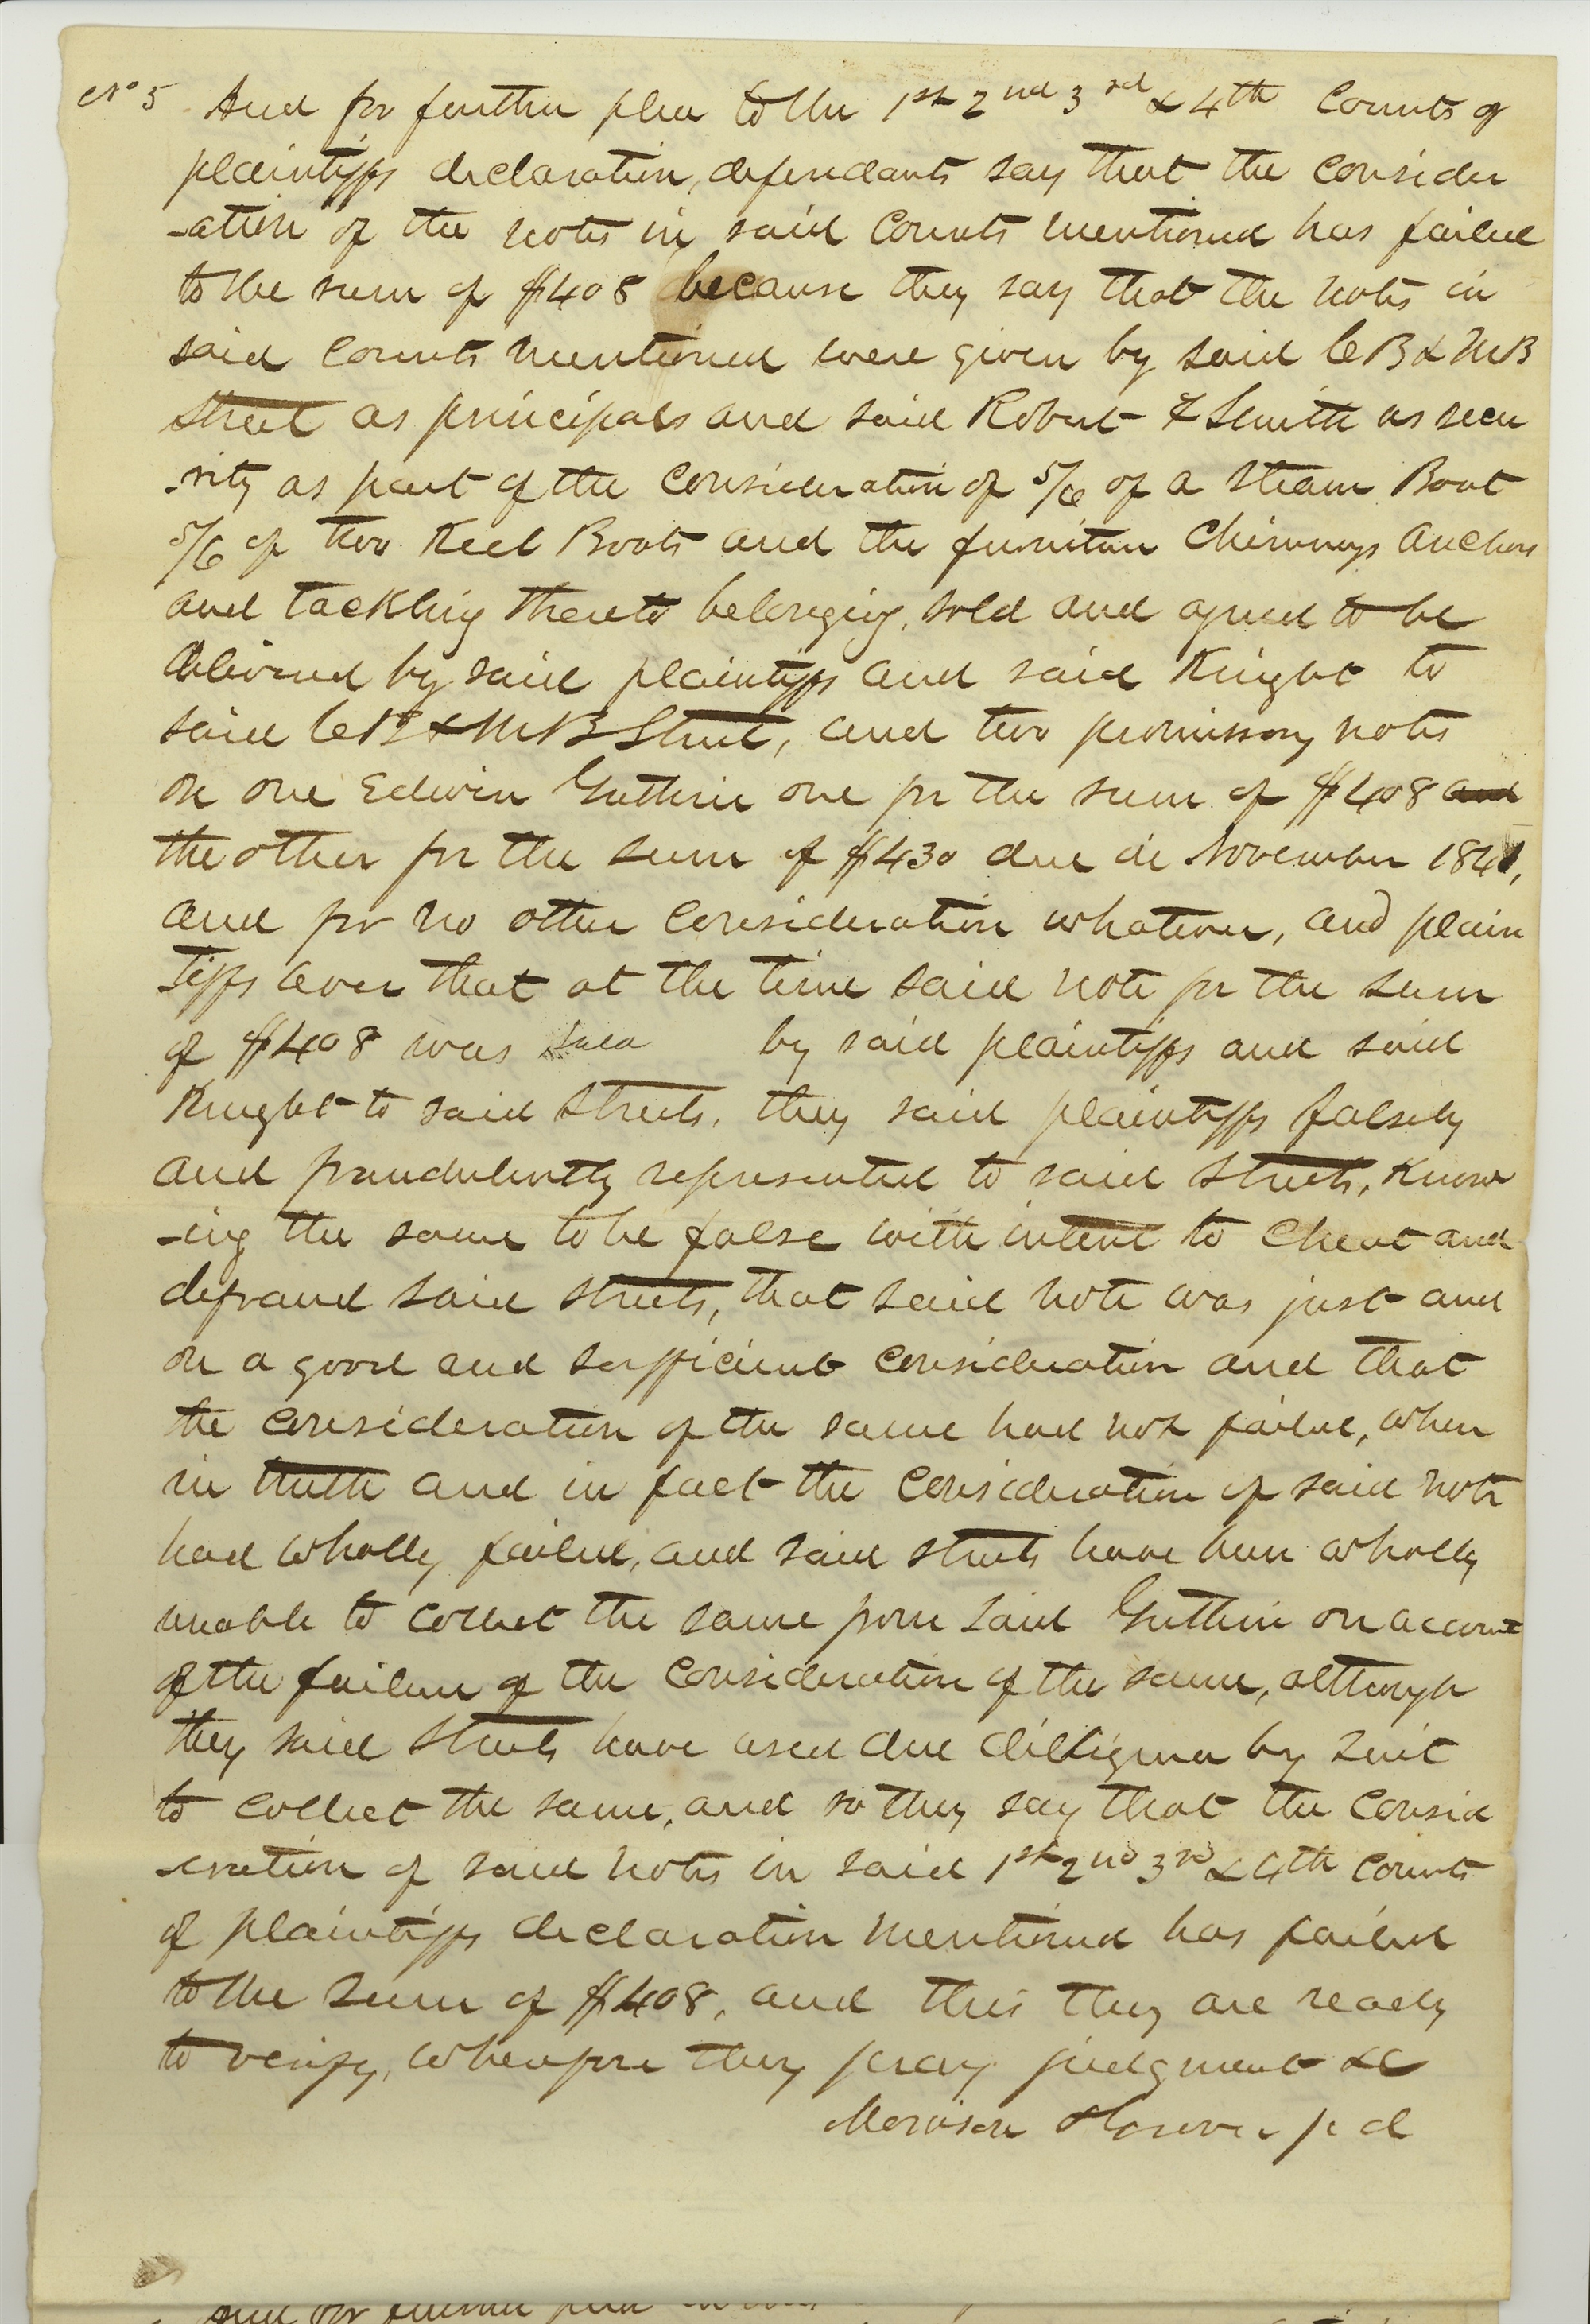 No 5 And for further plea to the 1st 2nd 3rd & 4th Counts of
plaintiffs declaration, defendants say that the consider
-ation of the notes in said Counts mentioned has failed
to the sum of $408 because they say that the notes in
said Counts mentioned were given by said C B & M B
Street as principals and said Robert F Smith as secu
-rity as part of the consideration of 5/6 of a Steam Boat
5/6 of two Keel Boats and the furniture Chimneys Anchors
and tackling thereto belonging, sold and agreed to be
delivered by said plaintiffs and said Knight to
said C B & M B Street, and two promissory notes
on one Edwin Guthrie one for the sum of $408 and
the other for the sum of $430 due in November 1841,
and for no other consideration whatever, and plain
tiffs aver that at the time said note for the sum
of $408 was sold by said plaintiffs and said
Knight to said Streets, they said plaintiffs falsely
and fraudulently represented to said Streets, know
-ing the same to be false with intent to cheat and
defraud said Streets, that said note was just and
on a good and sufficient consideration and that
the consideration of the same had not failed, when
in truth and in fact the consideration of said note
had wholly failed, and said Streets have been wholly
unable to collect the same from said Guthrie on account
of the failure of the consideration of the same, although
they said Streets have used due dilligence by suit
to collect the same, and so they say that the consid
-eration of said notes in said 1st 2nd 3rd & 4th Counts
of plaintiffs declaration mentioned has failed
to the sum of $408, and this they are ready
to verify, wherefore they pray judgment &c
p d
And for further plea